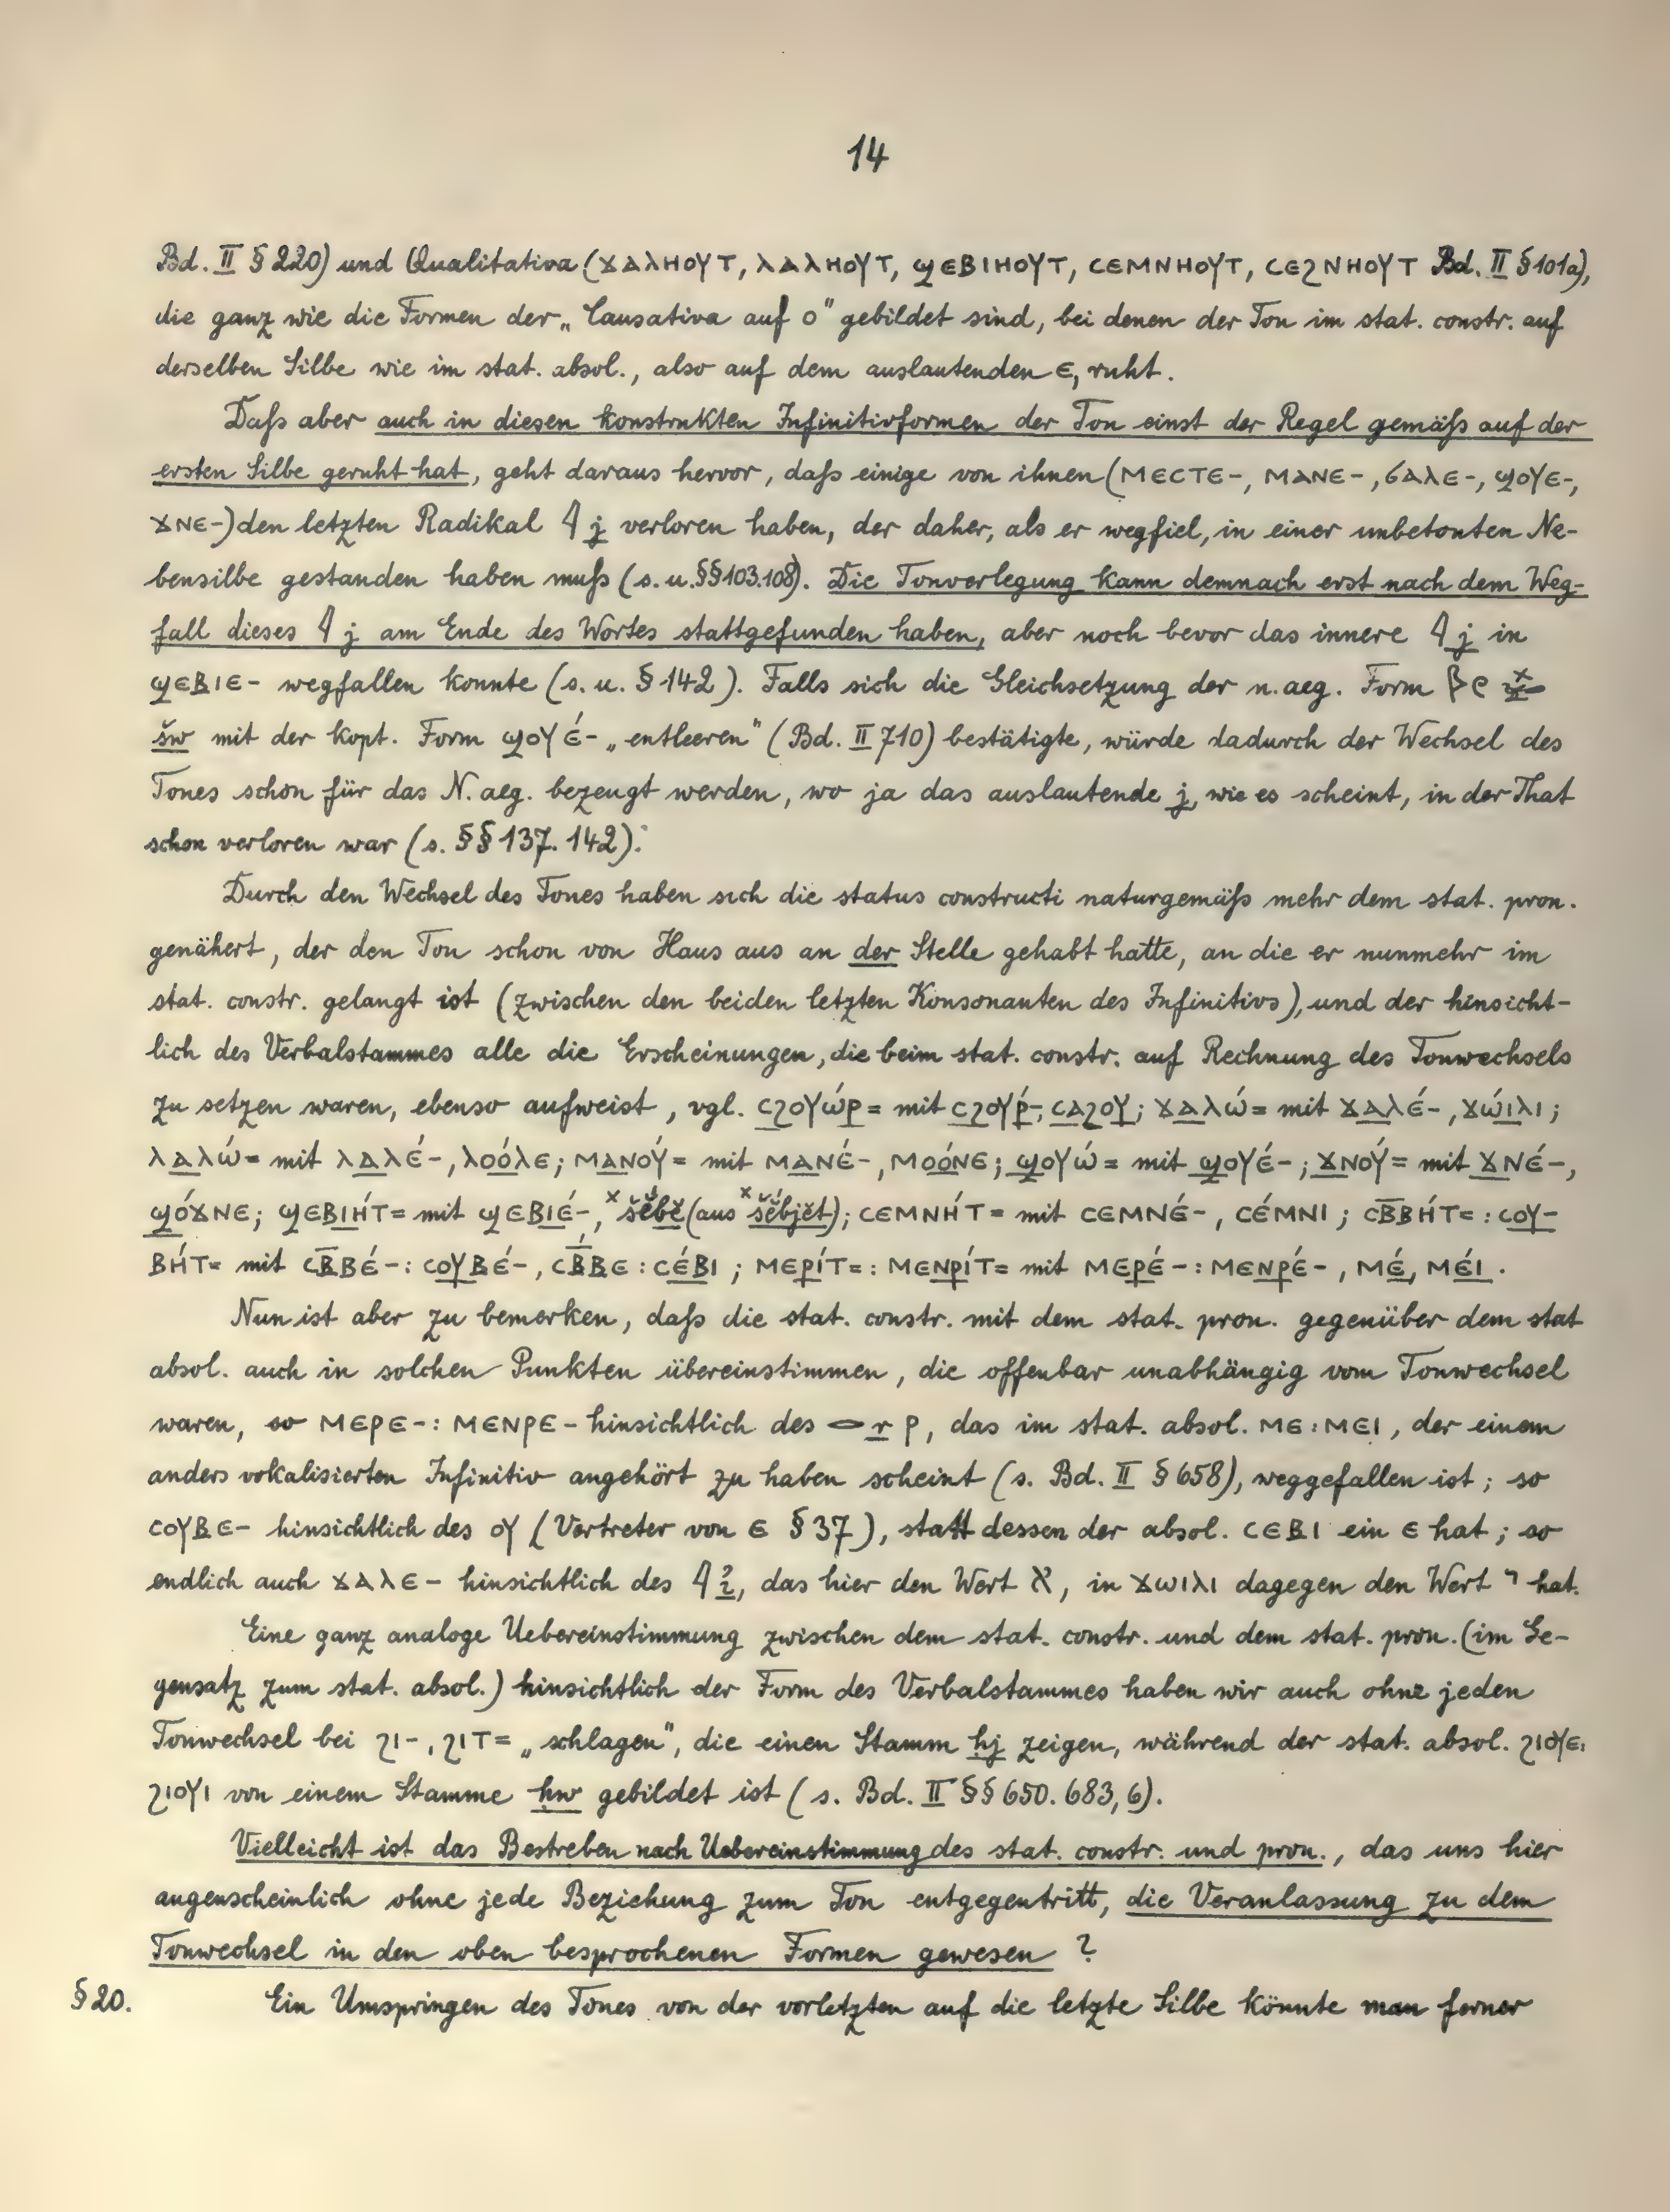 14
Bd. II § 220) und Qualitativa (ϫⲁⲗⲏⲟⲩⲧ, ⲗⲁⲗⲏⲟⲩⲧ, ϣⲉⲃⲓⲏⲟⲩⲧ, ⲥⲉⲙⲛⲏⲟⲩⲧ, ⲥⲉϩⲛⲏⲟⲩⲧ Bd. II § 101a),
die ganz wie die Formen der „Causativa auf o" gebildet sind, bei denen der Ton im stat. constr. auf
derselben Silbe wie im stat. absol., also auf dem auslautenden ⲉ, ruht.
Daß aber auch in diesen konstrukten Infinitivformen der Ton einst der Regel gemäß auf der
ersten Silbe geruht hat, geht daraus hervor, daß einige von ihnen (ⲙⲉⲥⲧⲉ-, ⲙⲁⲛⲉ-, ϭⲁⲗⲉ-, ϣⲟⲩⲉ-,
ϫⲛⲉ-) den letzten Radikal 𓇋 j verloren haben, der daher, als er wegfiel, in einer unbetonten Ne-
bensilbe gestanden haben muß (s. u. §§ 103. 108). Die Tonverlegung kann demnach erst nach dem Weg-
fall dieses 𓇋 j am Ende des Wortes stattgefunden haben, aber noch bevor das innere 𓇋 j in
ϣⲉⲃⲓⲉ- wegfallen konnte (s. u. § 142). Falls sich die Gleichsetzung der n. aeg. Form
šw mit der kopt. Form ϣⲟⲩⲉ́- „entleeren" (Bd. II 710) bestätigte, würde dadurch der Wechsel des
Tones schon für das N. aeg. bezeugt werden, wo ja das auslautende j, wie es scheint, in der That
schon verloren war (s. §§ 137. 142).
Durch den Wechsel des Tones haben sich die status constructi naturgemäß mehr dem stat. pron.
genähert, der den Ton schon von Haus aus an der Stelle gehabt hatte, an die er nunmehr im
stat. constr. gelangt ist (zwischen den beiden letzten Konsonanten des Infinitivs), und der hinsicht-
lich des Verbalstammes alle die Erscheinungen, die beim stat. constr. auf Rechnung des Tonwechsels
zu setzen waren, ebenso aufweist, vgl. ⲥϩⲟⲩⲱ́ⲣ= mit ⲥϩⲟⲩⲣ́-, ⲥⲁϩⲟⲩ; ϫⲁⲗⲱ́= mit ϫⲁⲗⲉ́-, ϫⲱ́ⲓⲗⲓ;
ⲗⲁⲗⲱ́= mit ⲗⲁⲗⲉ́-, ⲗⲟⲟ́ⲗⲉ; ⲙⲁⲛⲟⲩ́= mit ⲙⲁⲛⲉ́-, ⲙⲟⲟ́ⲛⲉ; ϣⲟⲩⲱ́= mit ϣⲟⲩⲉ́-; ϫⲛⲟⲩ́= mit ϫⲛⲉ́-,
ϣⲟ́ϫⲛⲉ; ϣⲉⲃⲓⲏ́ⲧ= mit ϣⲉⲃⲓⲉ́-, ˣšĕ́bĕ (aus ˣšĕbjĕ́t); ⲥⲉⲙⲛⲏ́ⲧ= mit ⲥⲉⲙⲛⲉ́-, ⲥⲉ́ⲙⲛⲓ; ⲥⲃ̅ⲃⲏ́ⲧ= : ⲥⲟⲩ-
ⲃⲏ́ⲧ= mit ⲥⲃ̅ⲃⲉ́- : ⲥⲟⲩⲃⲉ́-, ⲥⲃ̅́ⲃⲉ : ⲥⲉ́ⲃⲓ; ⲙⲉⲣⲓ́ⲧ= : ⲙⲉⲛⲣⲓ́ⲧ= mit ⲙⲉⲣⲉ́- : ⲙⲉⲛⲣⲉ́-, ⲙⲉ́, ⲙⲉ́ⲓ.
Nun ist aber zu bemerken, daß die stat. constr. mit dem stat. pron. gegenüber dem stat
absol. auch in solchen Punkten übereinstimmen, die offenbar unabhängig vom Tonwechsel
waren, so ⲙⲉⲣⲉ- : ⲙⲉⲛⲣⲉ- hinsichtlich des 𓂋 r ⲣ, das im stat. absol. ⲙⲉ : ⲙⲉⲓ, der einem
anders vokalisierten Infinitiv angehört zu haben scheint (s. Bd. II § 658), weggefallen ist; so
ⲥⲟⲩⲃⲉ- hinsichtlich des ⲟⲩ (Vertreter von ⲉ § 37), statt dessen der absol. ⲥⲉⲃⲓ ein ⲉ hat; so
endlich auch ϫⲁⲗⲉ- hinsichtlich des 𓇋 ꞽ, das hier den Wert א, in ϫⲱⲓⲗⲓ dagegen den Wert י hat.
Eine ganz analoge Uebereinstimmung zwischen dem stat. constr. und dem stat. pron. (im Ge-
gensatz zum stat. absol.) hinsichtlich der Form des Verbalstammes haben wir auch ohne jeden
Tonwechsel bei ϩⲓ-, ϩⲓⲧ= „schlagen", die einen Stamm ḥj zeigen, während der stat. absol. ϩⲓⲟⲩⲉ:
ϩⲓⲟⲩⲓ von einem Stamme ḥw gebildet ist (s. Bd. II §§ 650. 683, 6).
Vielleicht ist das Bestreben nach Uebereinstimmung des stat. constr. und pron., das uns hier
augenscheinlich ohne jede Beziehung zum Ton entgegentritt, die Veranlassung zu dem
Tonwechsel in den oben besprochenen Formen gewesen ?
§ 20. Ein Umspringen des Tones von der vorletzten auf die letzte Silbe könnte man ferner